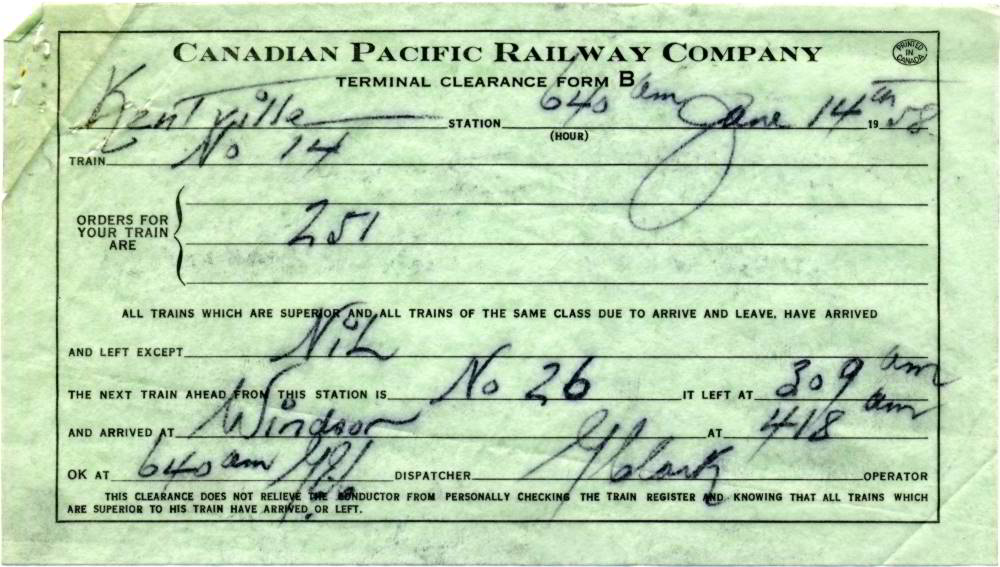 CANADIAN PACIFIC RAILWAY COMPANY
PRINTED IN CANADA
TERMINAL CLEARANCE FORM B
Kentville STATION 640 am (HOUR) June 14th 1958
TRAIN No 14
ORDERS FOR YOUR TRAIN ARE 251
ALL TRAINS WHICH ARE SUPERIOR AND ALL TRAINS OF THE SAME CLASS DUE TO ARRIVE AND LEAVE, HAVE ARRIVED
AND LEFT EXCEPT NiL
THE NEXT TRAIN AHEAD FROM THIS STATION IS No 26 IT LEFT AT 309 am
AND ARRIVED AT Windsor AT 418 am
OK AT 640 am DISPATCHER Clark OPERATOR
THIS CLEARANCE DOES NOT RELIEVE THE CONDUCTOR FROM PERSONALLY CHECKING THE TRAIN REGISTER AND KNOWING THAT ALL TRAINS WHICH
ARE SUPERIOR TO HIS TRAIN HAVE ARRIVED OR LEFT.